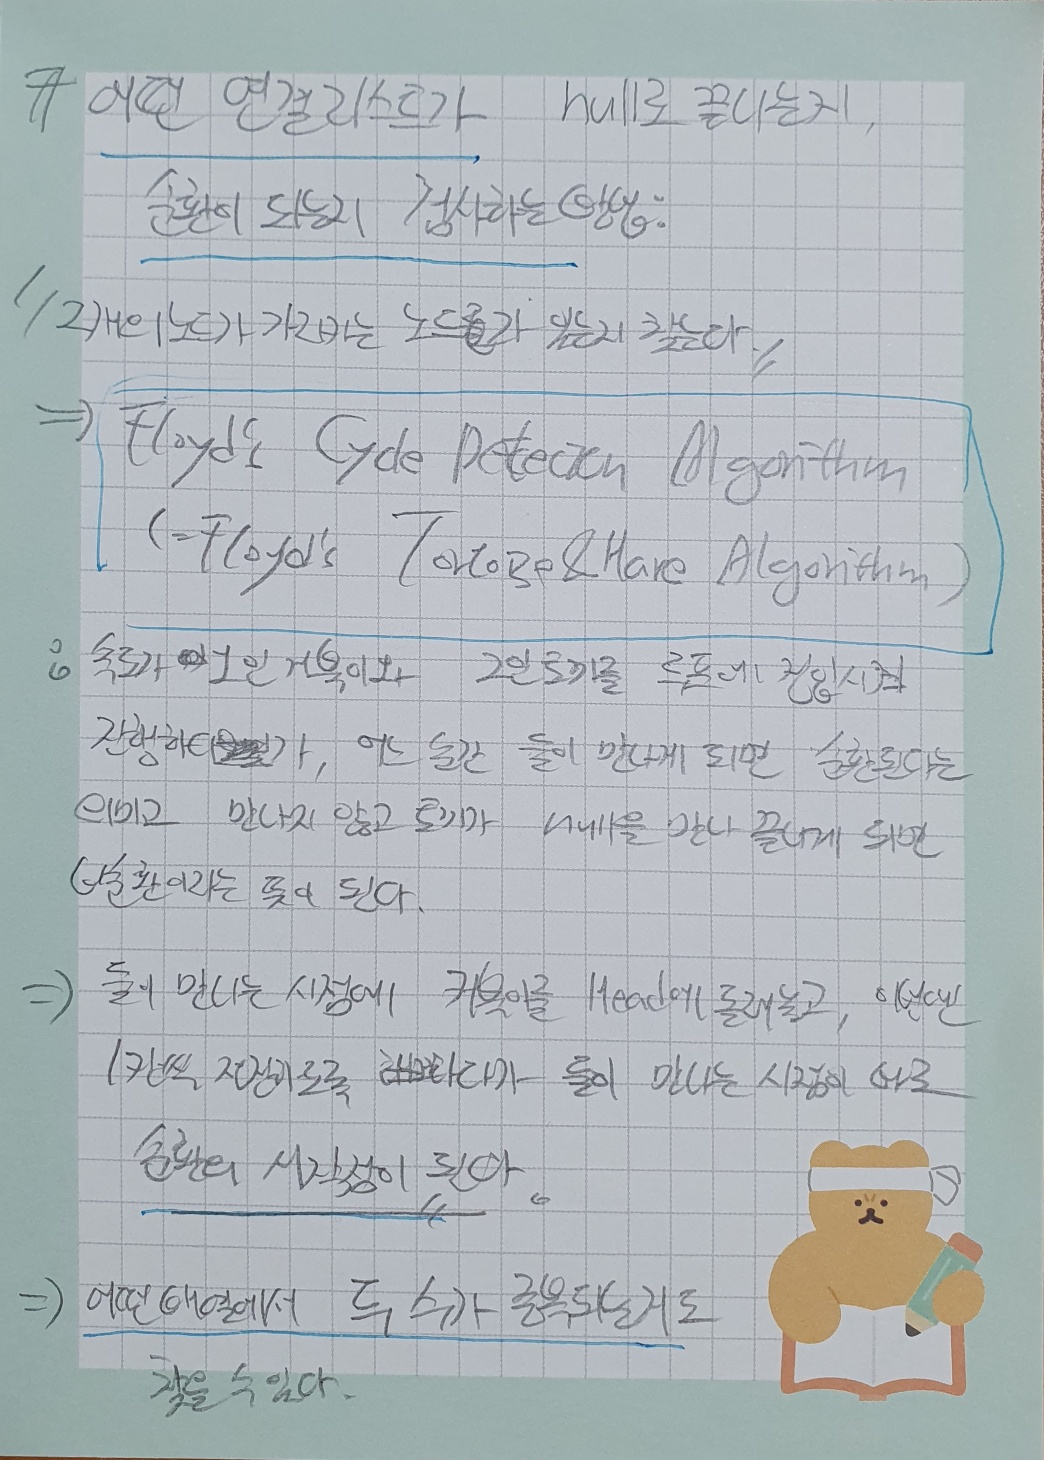 # 어떤 연결리스트가 null로 끝나는지,
순환이 되는지 검사하는 방법:
// 2개의 노드가 가리키는 노드가 있는지 찾는다.//
=> Floyd's Cycle Detection Algorithm
(=Floyd's Tortoise&Hare Algorithm)
: 속도가 1인 거북이와 2인 토끼를 루프에 진입시켜
진행하다가, 어느 순간 둘이 만나게 되면 순환된다는
의미고 만나지 않고 토끼가 null을 만나 끝나게 되면
비순환이라는 뜻이 된다.
=> 둘이 만나는 시점에 거북이를 Head에 돌려놓고, 이번엔
1칸씩 전진하도록 하다가 둘이 만나는 시점이 바로
순환의 시작점이 된다.
=> 어떤 배열에서 두 수가 중복되는거도
찾을 수 있다.